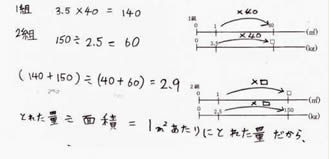 1組 3.5×40=140
2組 150÷2.5=60
(140+150)÷(40+60)=2.9
とれた量÷面積=1m²あたりにとれた量だから、
1組
×40
0 1 40 (m²)
×40
0 3.5 □ (kg)
2組
×□
0 1 □ (m²)
×□
0 2.5 150 (kg)